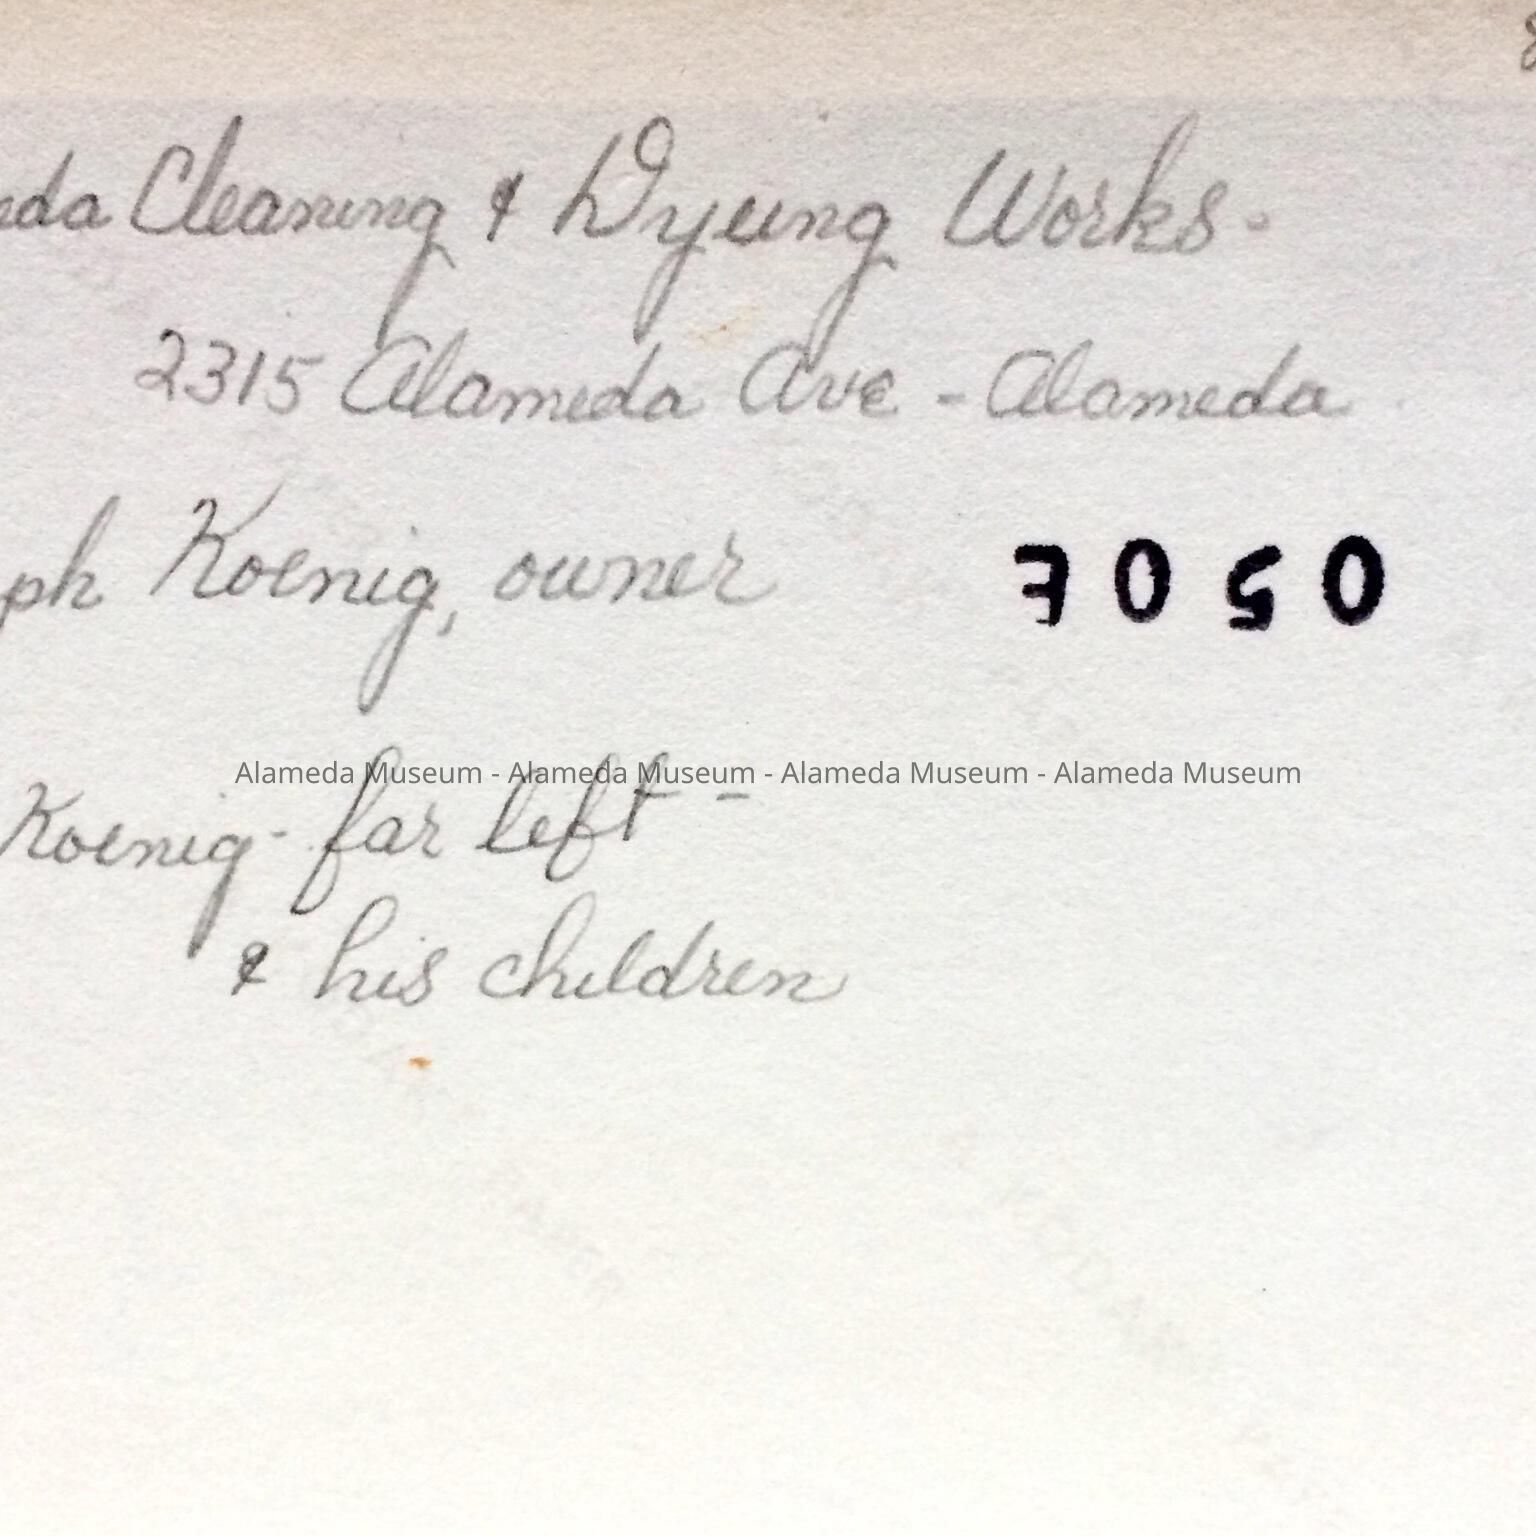 eda Cleaning & Dyeing Works -
2315 Alameda Ave - Alameda
ph Koenig, owner 7050
Alameda Museum - Alameda Museum - Alameda Museum - Alameda Museum
Koenig - far left -
& his children